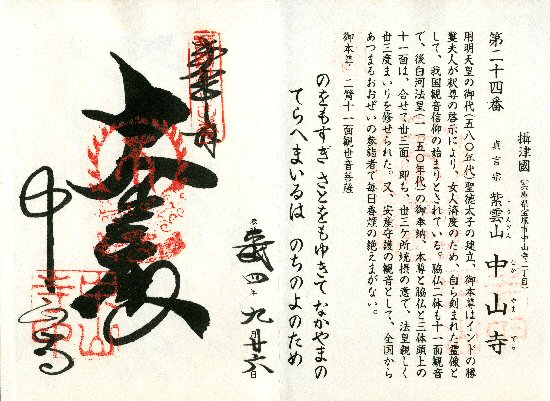 第二十四番
摂津國 (兵庫県宝塚市中山寺二丁目)
真言宗 紫雲山 中山寺
しうんざん なかやまでら
用明天皇の御代(五八〇年代)聖徳太子の建立、御本尊はインドの勝
鬘夫人が釈尊の啓示により、女人済度のため、自ら刻まれた霊像と
して、我国観音信仰の始まりとされている。脇仏二体も十一面観音
で、後白河法皇(一一五〇年代)の御奉納、本尊と脇仏と三体頭上の
十一面は、合せて卅三面、即ち、卅三ヶ所統摂の意で、法皇親しく
卅三度まいりを修せられた。又、安産守護の観音として、全国から
あつまるおおぜいの参詣者で毎日香煙の絶えまがない。
御本尊 二臂十一面観世音菩薩
のをもすぎ さとをもゆきて なかやまの
てらへまいるは のちのよのため
九月廿六日
奉拝
大悲殿
中山寺